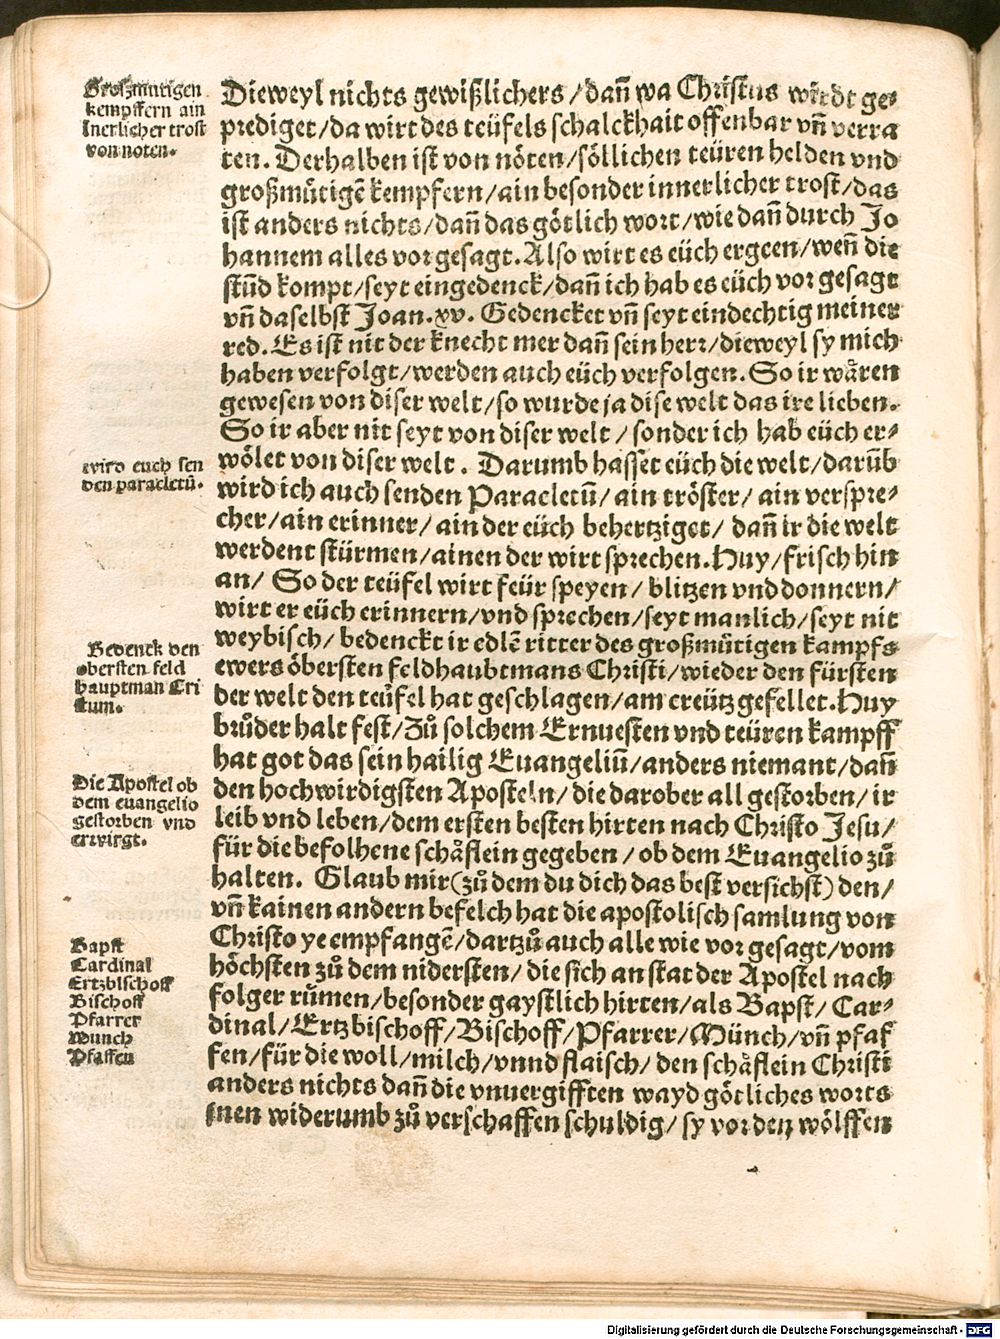 Großmütigen
kempffern ain
Inerlicher trost
von noten.
Dieweyl nichts gewißlichers / dañ wa Christus wirdt ge⸗
prediget / da wirt des teüfels schalckhait offenbar vñ verra
ten. Derhalben ist von nöten / söllichen teüren helden vnd
großmütigẽ kempfern / ain besonder innerlicher trost / das
ist anders nichts / dañ das götlich wort / wie dañ durch Jo
hannem alles vor gesagt. Also wirt es eüch ergeen / weñ die
stũd kompt / seyt eingedenck / dañ ich hab es eüch vor gesagt
vñ daselbst Joan. xv. Gedencket vñ seyt eindechtig meiner
red. Es ist nit der knecht mer dañ sein herr / dieweyl sy mich
haben verfolgt / werden auch eüch verfolgen. So ir wåren
gewesen von diser welt / so wurde ja dise welt das ire lieben.
So ir aber nit seyt von diser welt / sonder ich hab eüch er⸗
wölet von diser welt. Darumb hasset eüch die welt / darũb
wird euch sen
den paracletũ.
wird ich auch senden Paracletũ / ain tröster / ain verspre⸗
cher / ain erinner / ain der eüch behertziget / dañ ir die welt
werdent stürmen / ainen der wirt sprechen. Huy / frisch hin
an / So der teüfel wirt feür speyen / blitzen vnd donnern /
wirt er eüch erinnern / vnd sprechen / seyt manlich / seyt nit
weybisch / bedenckt ir edlẽ ritter des großmütigen kampfs
Bedenck den
obersten feld
hauptman Cri
stum.
ewers öbersten feldhaubtmans Christi / wieder den fürsten
der welt den teüfel hat geschlagen / am creütz gefellet. Huy
brůder halt fest / Zů solchem Ernuesten vnd teüren kampff
hat got das sein hailig Euangeliũ / anders niemant / dañ
Die Apostel ob
dem euangelio
gestorben vnd
erwirgt.
den hochwirdigsten Aposteln / die darober all gestorben / ir
leib vnd leben / dem ersten besten hirten nach Christo Jesu /
für die befolhene schåflein gegeben / ob dem Euangelio zů
halten. Glaub mir (zů dem du dich das best versichst) den /
vñ kainen andern befelch hat die apostolisch samlung von
Christo ye empfangẽ / dartzů auch alle wie vor gesagt / vom
Bapst
Cardinal
Ertzbischoff
Bischoff
Pfarrer
Münch
Pfaffen
höchsten zů dem nidersten / die sich an stat der Apostel nach
folger růmen / besonder gaystlich hirten / als Bapst / Car⸗
dinal / Ertzbischoff / Bischoff / Pfarrer / Münch / vñ pfaf
fen / für die woll / milch / vnnd flaisch / den schåflein Christi
anders nichts dañ die vnuergifften wayd götliches worts
inen widerumb zů verschaffen schuldig / sy vor den wölffen
Digitalisierung gefördert durch die Deutsche Forschungsgemeinschaft - DFG